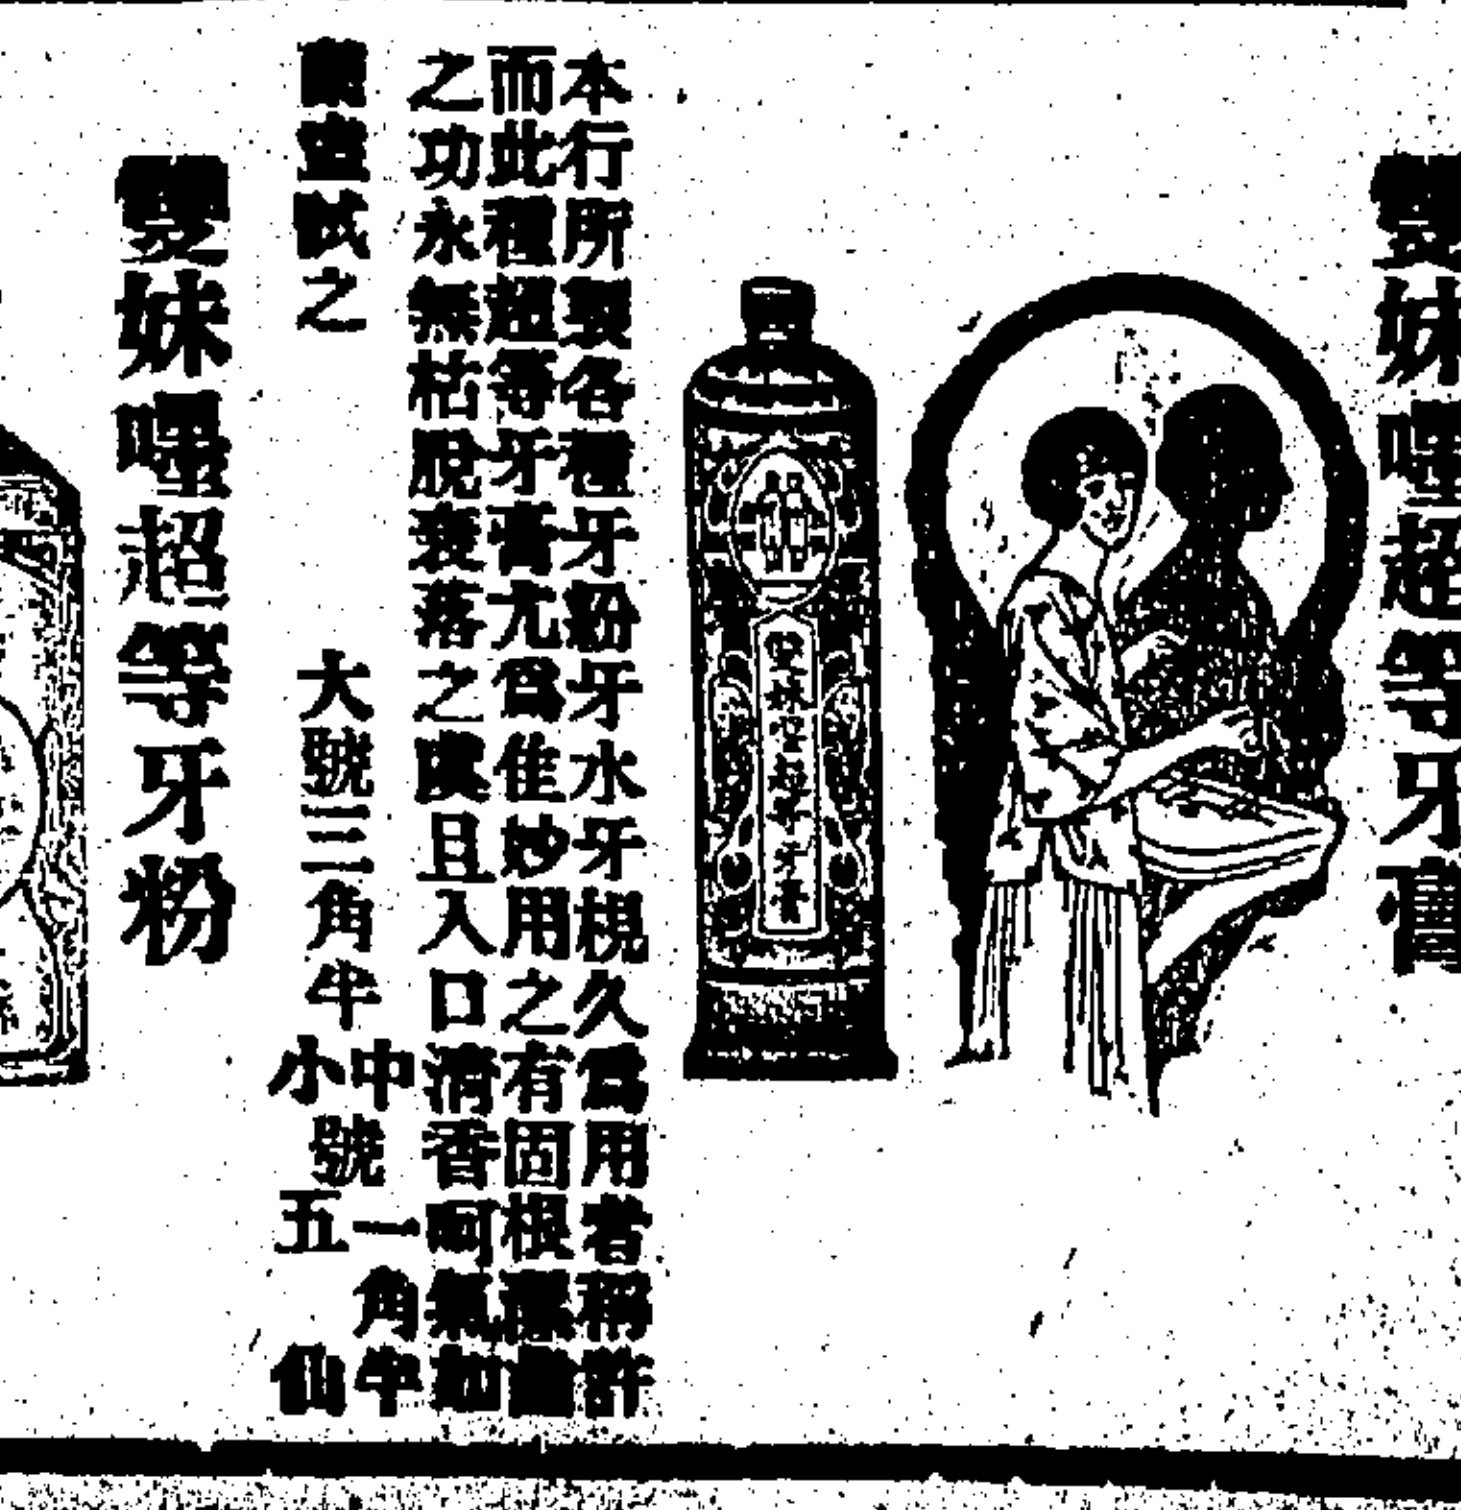 雙妹嚜超等牙膏
雙妹嚜超等牙膏
本行所製各種牙粉牙水牙梘久爲用者稱許
而此種超等牙膏尤爲佳妙用之有固根潔齒
之功永無枯脫衰落之虞且入口清香呵氣如
蘭盍試之
大號三角半
中號一角半
小號五仙
雙妹嚜超等牙粉